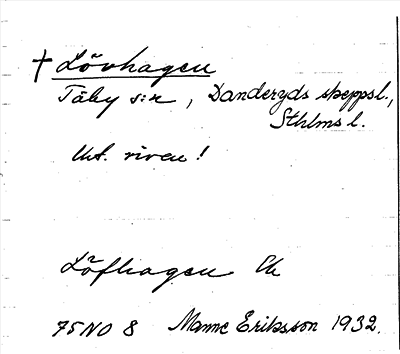 † Lövhagen
Täby s:n, Danderyds skeppsl.,
Sthlms l.
Ut. riven!
Löfhagen Ek
75 NO 8 Manne Eriksson 1932.